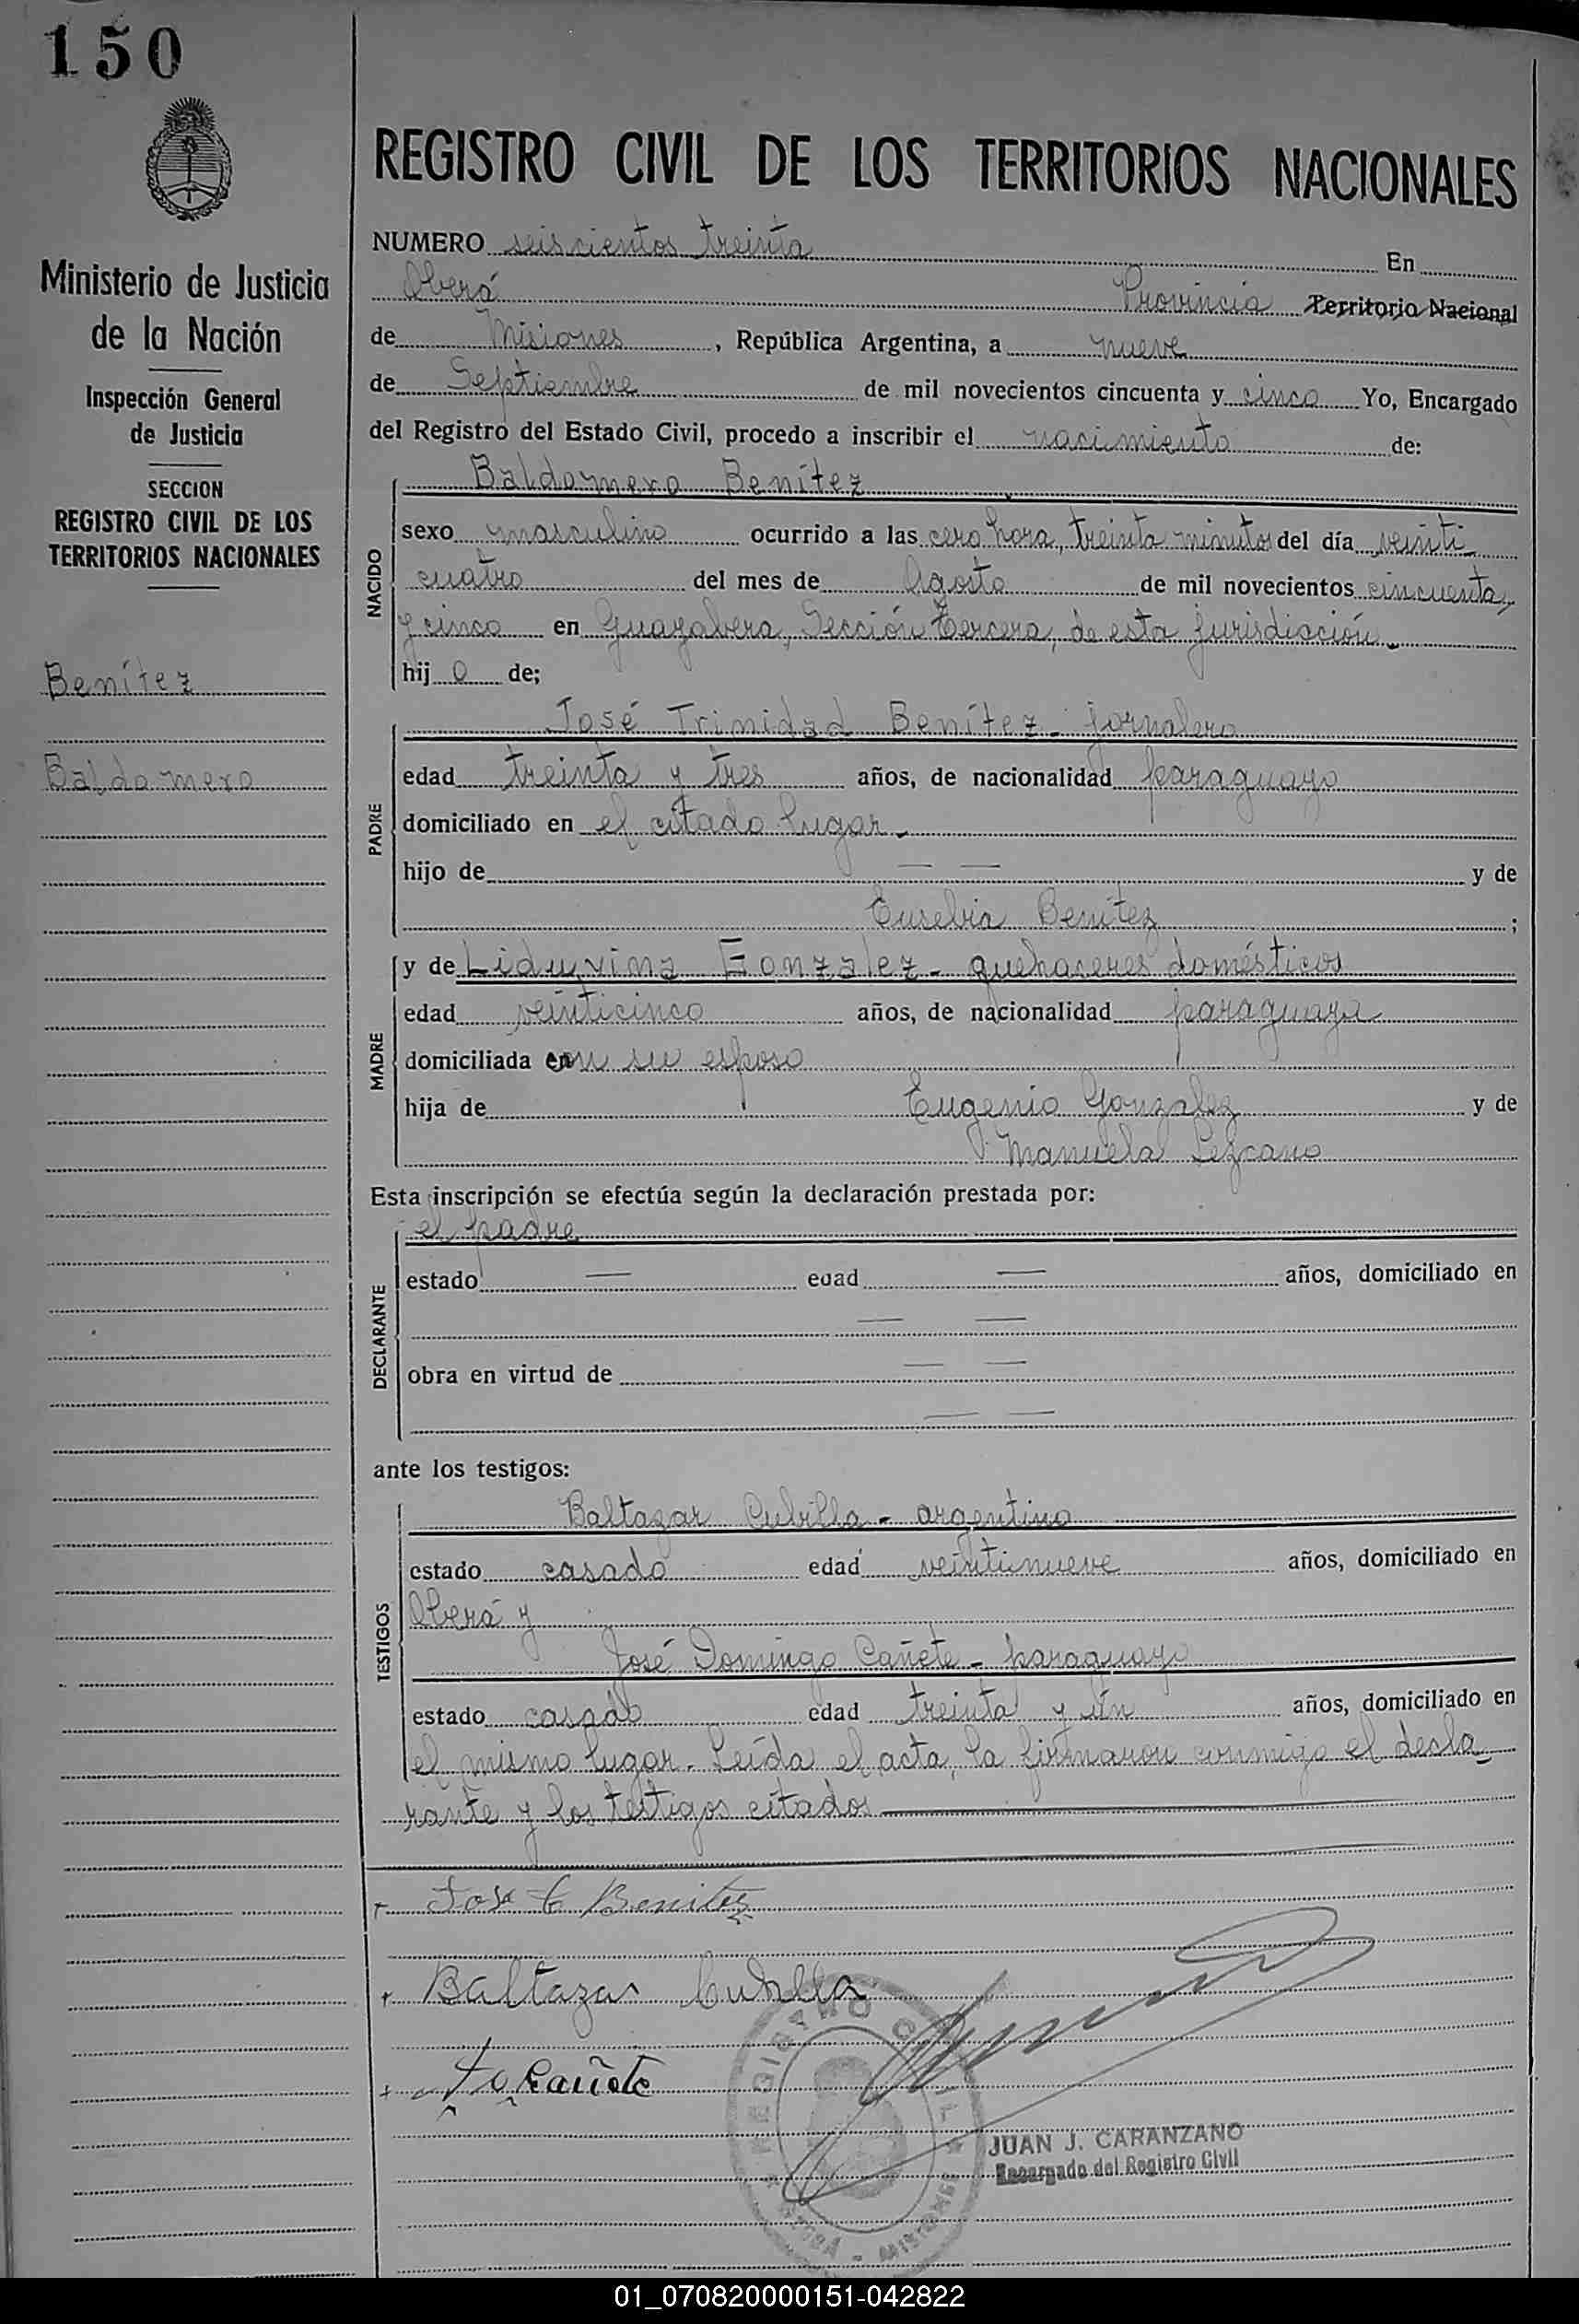 150
Ministerio de Justicia
de la Nación
Inspección General
de Justicia
SECCION
REGISTRO CIVIL DE LOS
TERRITORIOS NACIONALES
Benítez
Baldomero
REGISTRO CIVIL DE LOS TERRITORIOS NACIONALES
NUMERO seiscientos treinta En
Oberá Provincia Territorio Nacional
de Misiones, República Argentina, a nueve
de Septiembre de mil novecientos cincuenta y cinco Yo, Encargado
del Registro del Estado Civil, procedo a inscribir el nacimiento de:
Baldomero Benítez
NACIDO
sexo masculino ocurrido a las cero hora, treinta minutos del día veinti
cuatro del mes de Agosto de mil novecientos cincuenta
y cinco en Guayabera, Sección Tercera, de esta jurisdicción.
hij o de;
PADRE
José Trinidad Benítez - jornalero
edad treinta y tres años, de nacionalidad paraguayo
domiciliado en el citado lugar.
hijo de — — y de
Eusebia Benítez ;
MADRE
y de Liduvina Gonzalez - quehaceres domésticos
edad veinticinco años, de nacionalidad paraguaya
domiciliada con su esposo
hija de Eugenio Gonzalez y de
Manuela Lezcano
Esta inscripción se efectúa según la declaración prestada por:
el padre
DECLARANTE
estado — edad — años, domiciliado en
— —
obra en virtud de — —
— —
ante los testigos:
TESTIGOS
Baltazar Cubilla - argentino
estado casado edad veintinueve años, domiciliado en
Oberá y
José Domingo Cañete - paraguayo
estado casado edad treinta y un años, domiciliado en
el mismo lugar. Leída el acta, la firmaron conmigo el decla-
rante y los testigos citados
+ José T Benitez
+ Baltazar Cubilla
+ Cañete
REGISTRO CIVIL
OBERA - MISIONES
JUAN J. CARANZANO
Encargado del Registro Civil
01_070820000151-042822